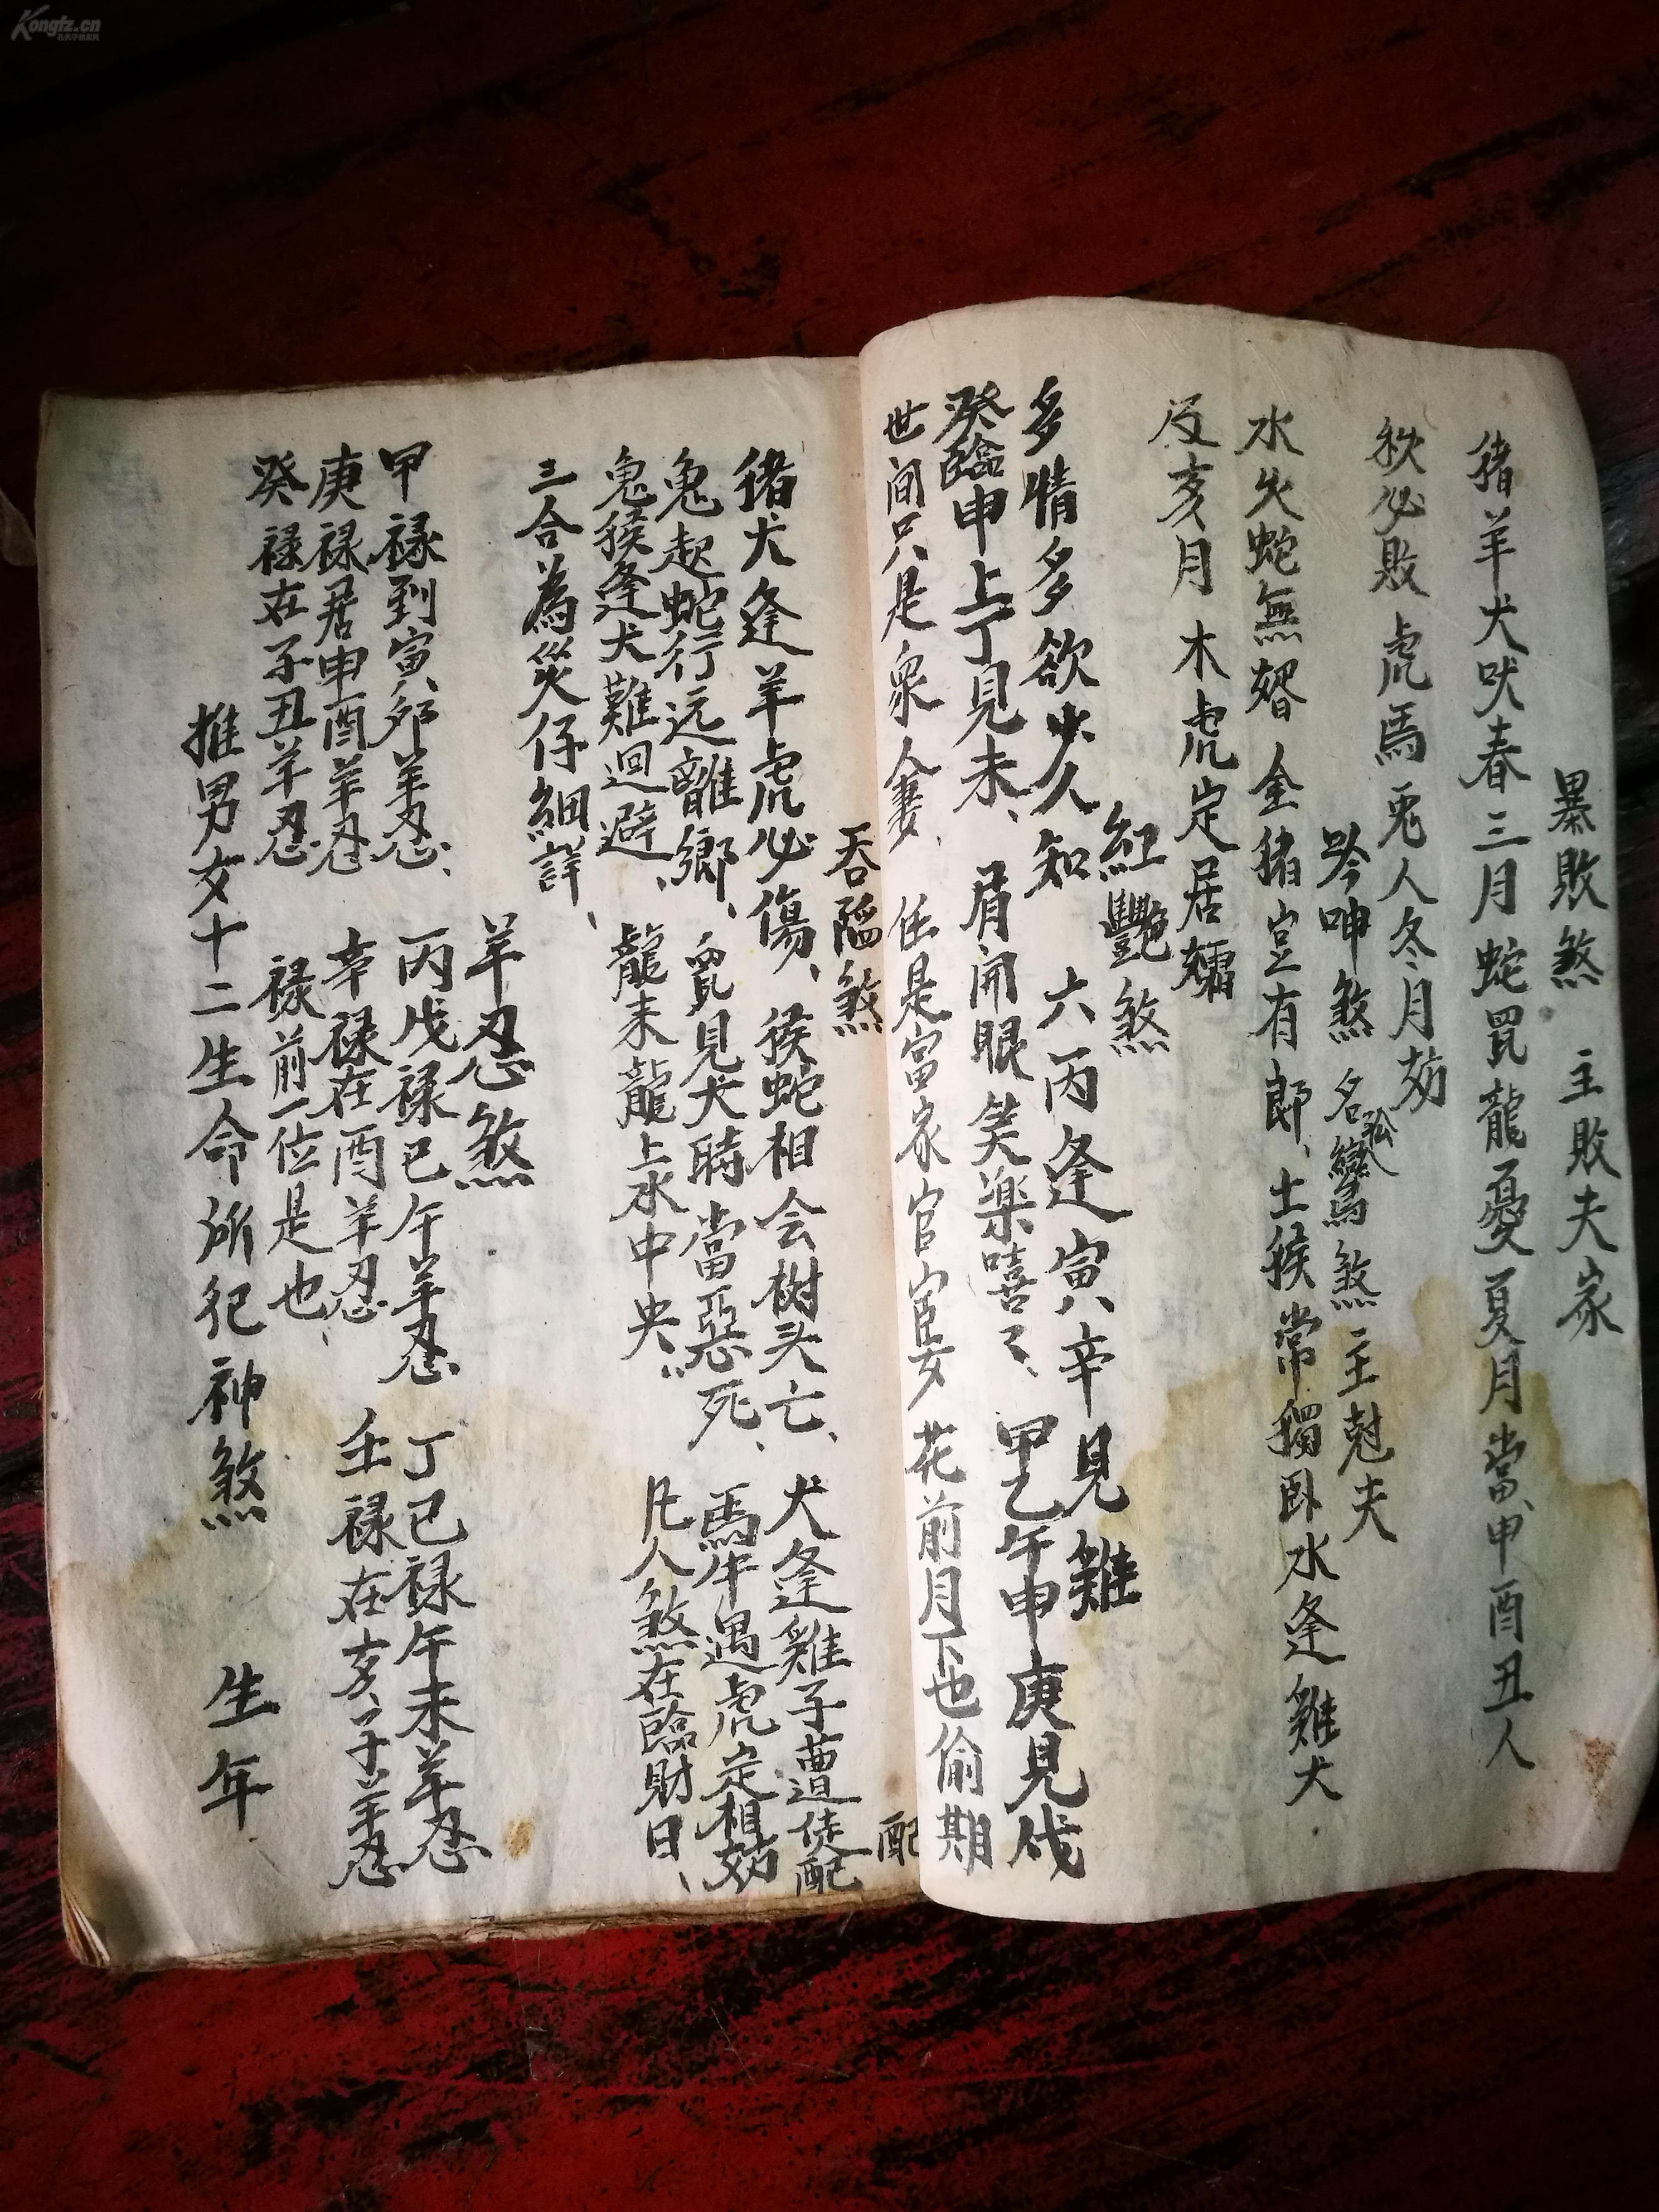 暴敗煞 主敗夫家
猪羊犬吠春三月 蛇鼠龍憂夏月當、甲酉丑人
秋必敗 虎馬兎人冬月妨
呻煞 名孤鸞煞 主尅夫
水火蛇無婿 金猪豈有郎、土猴常獨臥 水逢雞犬
及亥月 木虎定居孀
紅艷煞
多情多欲少人知 六丙逢寅辛見雞
癸臨申上丁見未、眉開眼笑楽嘻々、甲乙午申庚見戌
世间只是衆人妻、任是富家官宦女 花前月下也偷期
吞陷煞
猪犬逢羊虎必傷、猴蛇相会树头亡、犬逢雞子遭徒配
配
兔起蛇行远離鄉、鼠見犬時當惡死、馬牛遇虎定相妨
鬼猴逢犬難迴避、龍来龍上水中央、凡人煞在臨財日、
三合為災仔細詳、
羊忍煞
甲禄到寅、卯羊忍、丙戊禄巳午羊忍 丁己禄午未羊忍
庚禄居申酉羊忍 辛禄在酉羊忍 壬禄在亥、子羊忍
癸禄在子丑羊忍 禄前一位是也、
推男女十二生命所犯神煞 生年